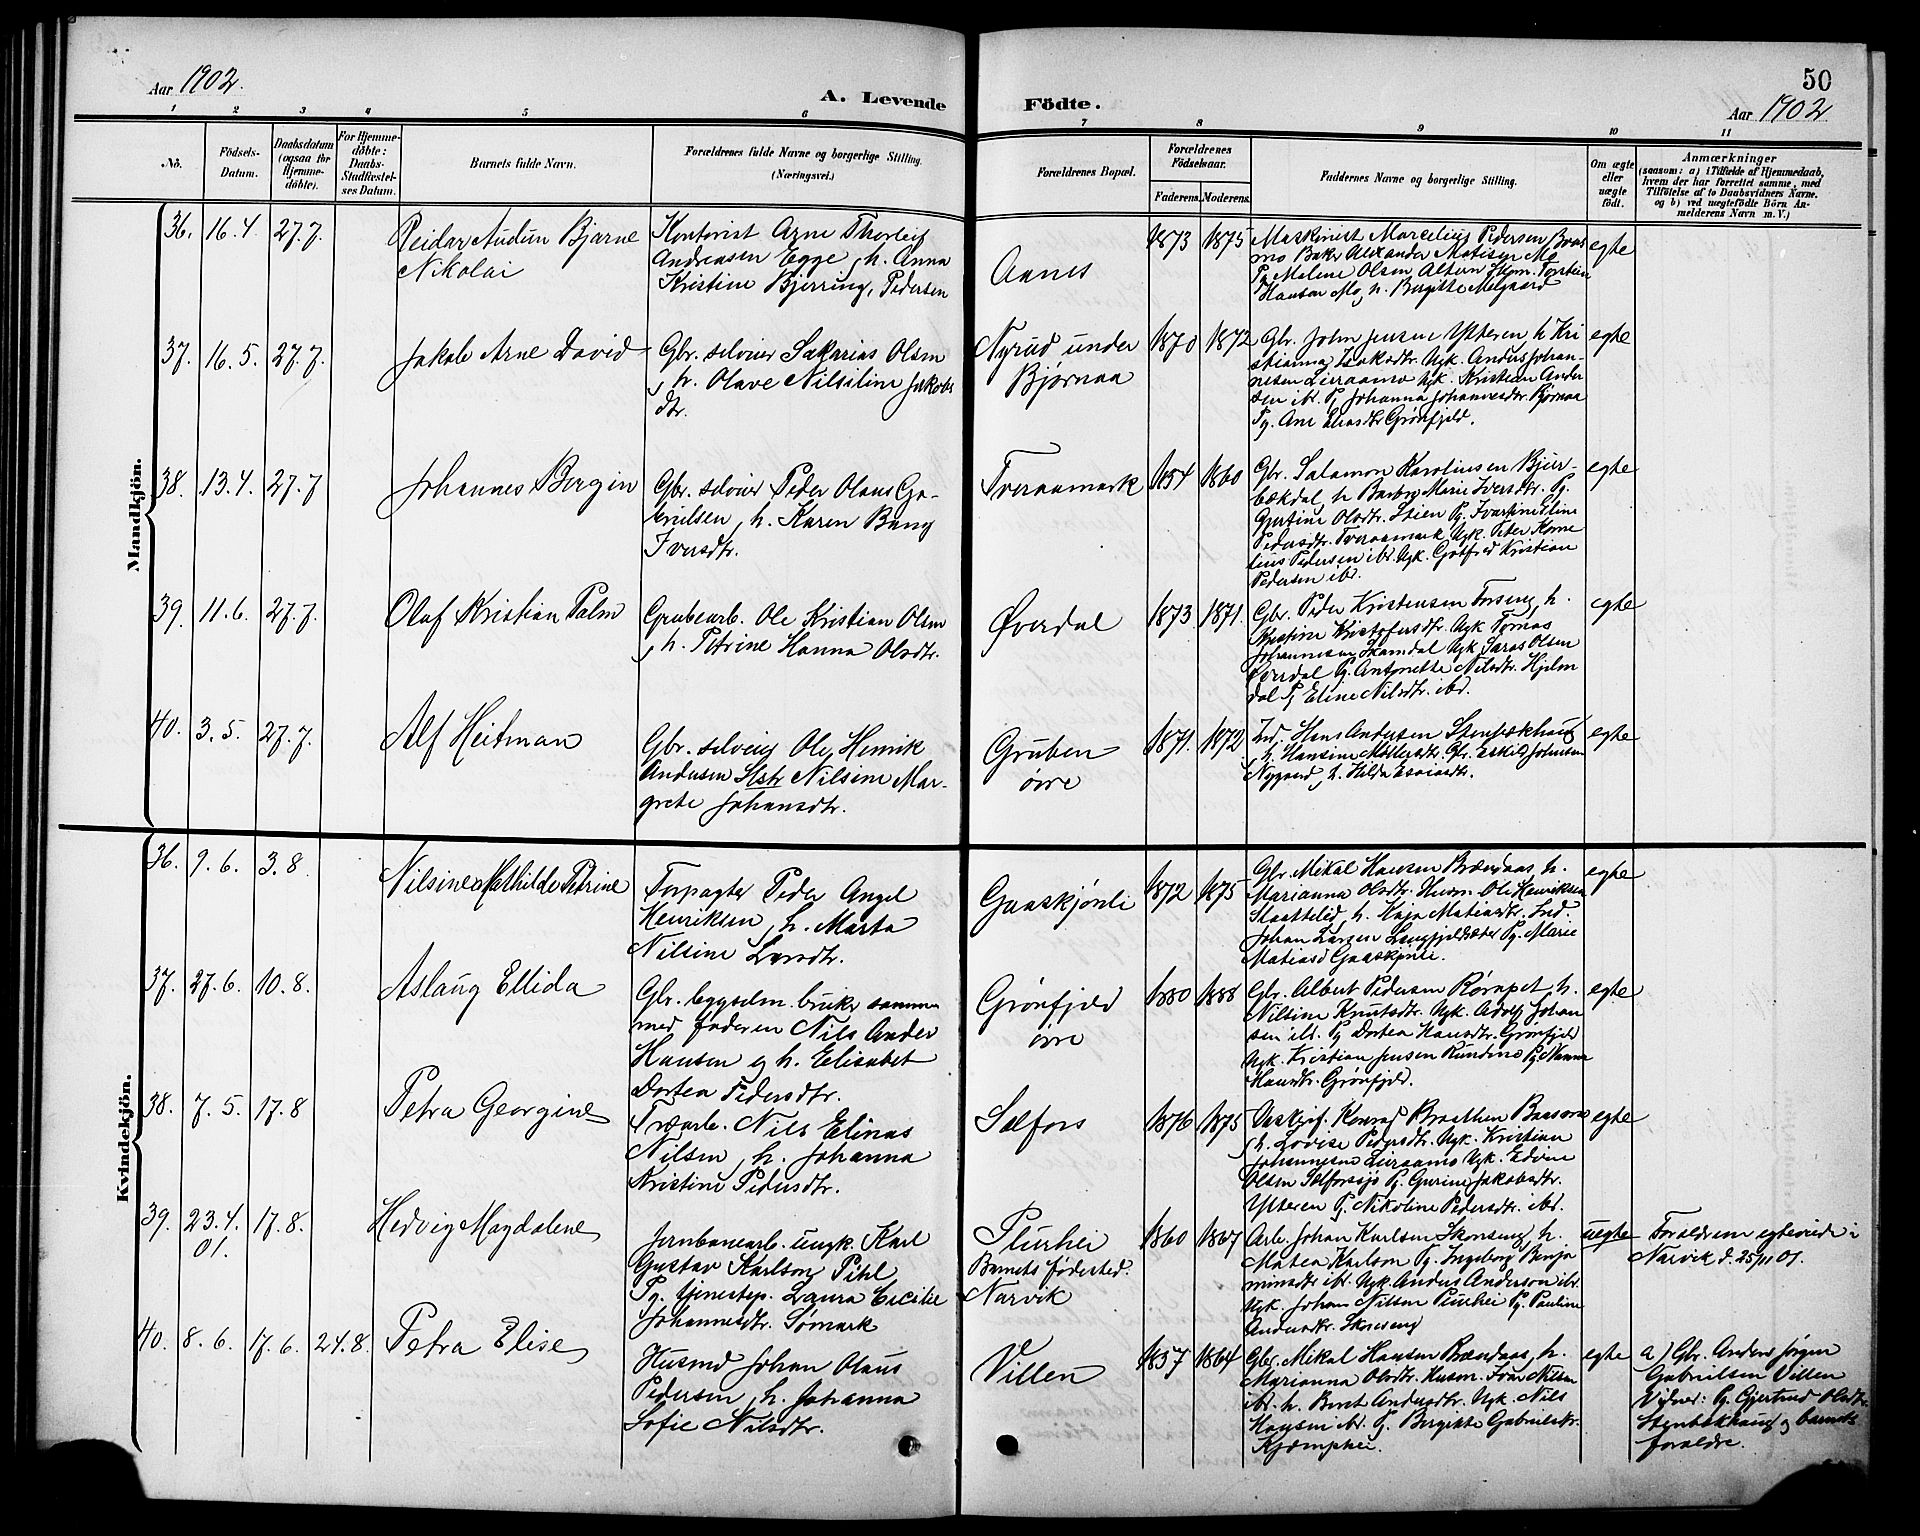 Aar 1902.
A. Levende Födte.
50
Aar 1902
1 2 3 4 5 6 7 8 9 10 11
No.
Födsels-
Datum.
Daabsdatum
(ogsaa for
Hjemme-
döbte).
For Hjemme-
döbte:
Daabs-
Stadfæstel-
ses Datum.
Barnets fulde Navn.
Forældrenes fulde Navne og borgerlige Stilling.
(Næringsvei.)
Forældrenes Bopæl.
Forældrenes
Födselsaar.
Faderens. Moderens.
Faddernes Navne og borgerlige Stilling.
Om ægte
eller
uægte
født.
Anmærkninger
(saasom: a) i Tilfælde af Hjemmedaab,
hvem der har forrettet samme, med
Tilföielse af to Daabsvidners Navne.
og b) ved uægtefödte Börn An-
melderens Navn m. V.)
Mandkjön.
36. 16.4 27.7. Reidar Audun Bjarne
Nikolai
Kontorist Arne Thorleif
Andreasen Egge, h. Anna
Kristine Bjerring, Pedersen
Aanes
1873 1875
Maskinist Marcelius Pedersen Baas
mo Baker Alexander Matisen Mo
Pg Malene Olsen Altern Skom. Torstein
Hansen Mo, h. Birgitte Melgaard
egte
37. 16.5. 27.7. Jakob Arne David
Gbr. selveier Sakarias Olsen
, h. Olave Nilsiline Jakobs
dtr.
Nyrud under
Bjørnaa
1870 1872
Gbr. John Jensen Ytteren h Kri
stianna Isaksdtr. Ugk. Anders Johan-
nesen Lieraamo Ugk. Kristian Ander
sen ibd. Pg Johanna Johannesdtr. Bjørnaa
Pg. Ane Eliasdtr Grønfjeld.
egte
38. 13.4. 27.7 Johannes Bergin
Gbr. selveier Peder Olaus Ga-
brielsen, h. Karen Bang
Iversdtr.
Tveraamark
1854 1860
Gbr. Salamon Karoliussen Bjer-
bækdal, h Barbro Marie Iversdtr. Pg.
Gjertine Olsdtr. Stien Pg. Ivartine Eline
Pedersdtr. Tveraamark Ugk. Peter Korne
lius Pedersen ibd. Ugk. Gotfred Kristian
Pedersen ibd.
egte
39. 11.6. 27.7. Olaf Kristian Palm
Grubearb. Ole Kristian Olsen
, h. Petrine Hanna Olsdtr.
Øverdal
1873. 1871.
Gbr. Peder Kristensen Forseng, h.
Kristine Kristofersdtr. Ugk Tomas
Johannesen Skamdal Ugk. Olsen
Øverdal Pg. Antonette Nilsdtr. Hjelm
dal Pg Eline Nilsdtr. ibd.
egte
40. 3.5. 27.7. Alf Heitman
Gbr. selveier Ole Henrik
Andersen Nilsine Mar-
grete Johansdtr.
Gruben
øvre
1871. 1872.
Ind. Hans Andersen Stenbækhaug
h. Hansine Gbr. Eskild Johansen
Nygaard, h. Hilda Esaiasdtr.
egte
Kvindekjön.
36. 9.6. 3.8 Nilsine Mathilde Petrine
Forpagter Peder Angel
Henriksen, h. Marta
Nilsine Larsdtr.
Gaaskjønli
1872 1875
Gbr. Mikal Hansen Brændaas, h.
Marianna Olsdtr. Husm. Ole Henriksen
Slaattelid, h. Kaja Matiasdtr. Ind.
Johan Larsen Langfjeldsæter Pg. Marie
Matiasd Gaaskjønli.
egte
37. 27.6. 10.8. Aslaug Ellida
Gbr. bygselm. bruker sammen
med faderen Nils Ander
Hansen og h. Elisabet
Dortea Pedersdtr.
Grønfjeld
øvre
1880 1888
Gbr. Albert Pedersen Røraget, h.
Nilsine Knutsdtr. Ugk. Adolf Johan
sen ibd. Pg Dortea Hansdtr. Grønfjeld
Ugk. Kristian Jensen Rundmo Pg. Nanna
Hansdtr. Grønfjeld.
egte
38. 7.5. 17.8 Petra Georgine
Træarb. Nils Elinas
Nilsen, h. Johanna
Kristine Pedersdtr.
Selfors
1876 1875
Konrad Braathen Baasmo
, h. Lovise Pedersdtr. Ugk. Kristian
Johannesen Lieraamo Ugk. Edvin
Olsen Selforsøi Pg. Gurine Jakobsdtr.
Ytteren Pg. Nikoline Pedersdtr. ibd.
egte
39. 23.4.
01. 17.8. Hedvig Magdalene
Jernbanearb. ungk. Karl
Gustav Karlson Pihl
Pg. tjenestep. Laura Cecilie
Johannesdtr. Sømark
Plurhei
Barnets fødested.
Narvik
1860 1867
Arb. Johan Karlsen Skonseng, h.
Matea Karlson Pg. Ingeborg Benja
minsdtr ibd. Ugk. Anders Anderson ibd.
Ugk. Johan Nilsen Plurhei Pg. Pauline
Andersdtr. Skonseng
uegte
Forældrene egteviede i
Narvik d. 25/11 01.
40. 8.6. 17.6. 24.8. Petra Elise
Husmd Johan Olaus
Pedersen, h. Johanna
Sofie Nilsdtr.
Villen
1857 1864
Gbr. Mikal Hansen Brændaas, h.
Marianna Olsdtr. Husm. Ivar Nilsen
ibd. h. Beret Andersdtr. Ugk. Nils
Hansen ibd. Pg Birgitte Gabrielsdtr.
Kjæmphei.
egte
a) Gbr. Anders Jørgen
Gabrielsen Villen
Vidner: Pg. Gjertrud Olsdtr.
Stenbækhaug og barnets
forældre.